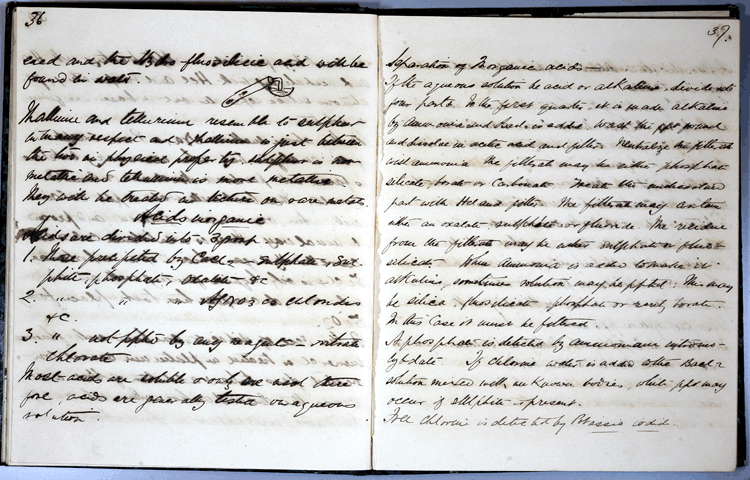 36
ered and the Hydro fluosilicic acid will be
found in water
Thallium and tellurium resemble to sulphur
in many respect and thallium is just between
the two in physical property sulphur is non
metallic and tellurium is more metallic
They will be treated in lecture on rare metals.
Acids inorganic
Acids are divided into 3 part
1. those precipitated by BaCl2 sulphate, sul-
phite, phosphate oxalate &c
2. " " " AgNO3 as chlorides
&c.
3. " not pptd by any reagent nitrate
chlorate
Most acids are soluble & only are used there
fore, acids are generally tested in aqueous
solution.
37.
Separation of Inorganic acids
If the aqueous solution be acid or alkaline, divide into
four parts. In the first quarter, it is made alkaline
by Ammonia and BaCl2 is added. Wash the ppt formed
and dissolve in acetic acid and filter. Neutralize the filtrate
with ammonia. The filtrate may be either phosphate
silicate, borate or Carbonate. Treat the undissolved
part with HCl and filter. The filtrate may contain
either an oxalate sulphate or fluoride. The residue
from the filtrate may be either sulphate or fluo-
silicate. When Ammonia is added to make it
alkaline, sometimes solution may be pptd. This may
be silica, fluosilicate phosphate or rarely borate.
In this case it must be filtered.
A phosphate is detected by ammonium
molybdate. If chlorine water is added to the BaCl2
solution mixed with unknown bodies, white ppt may
occur if sulphite is present.
Free chlorine is detected by Potassic iodid.